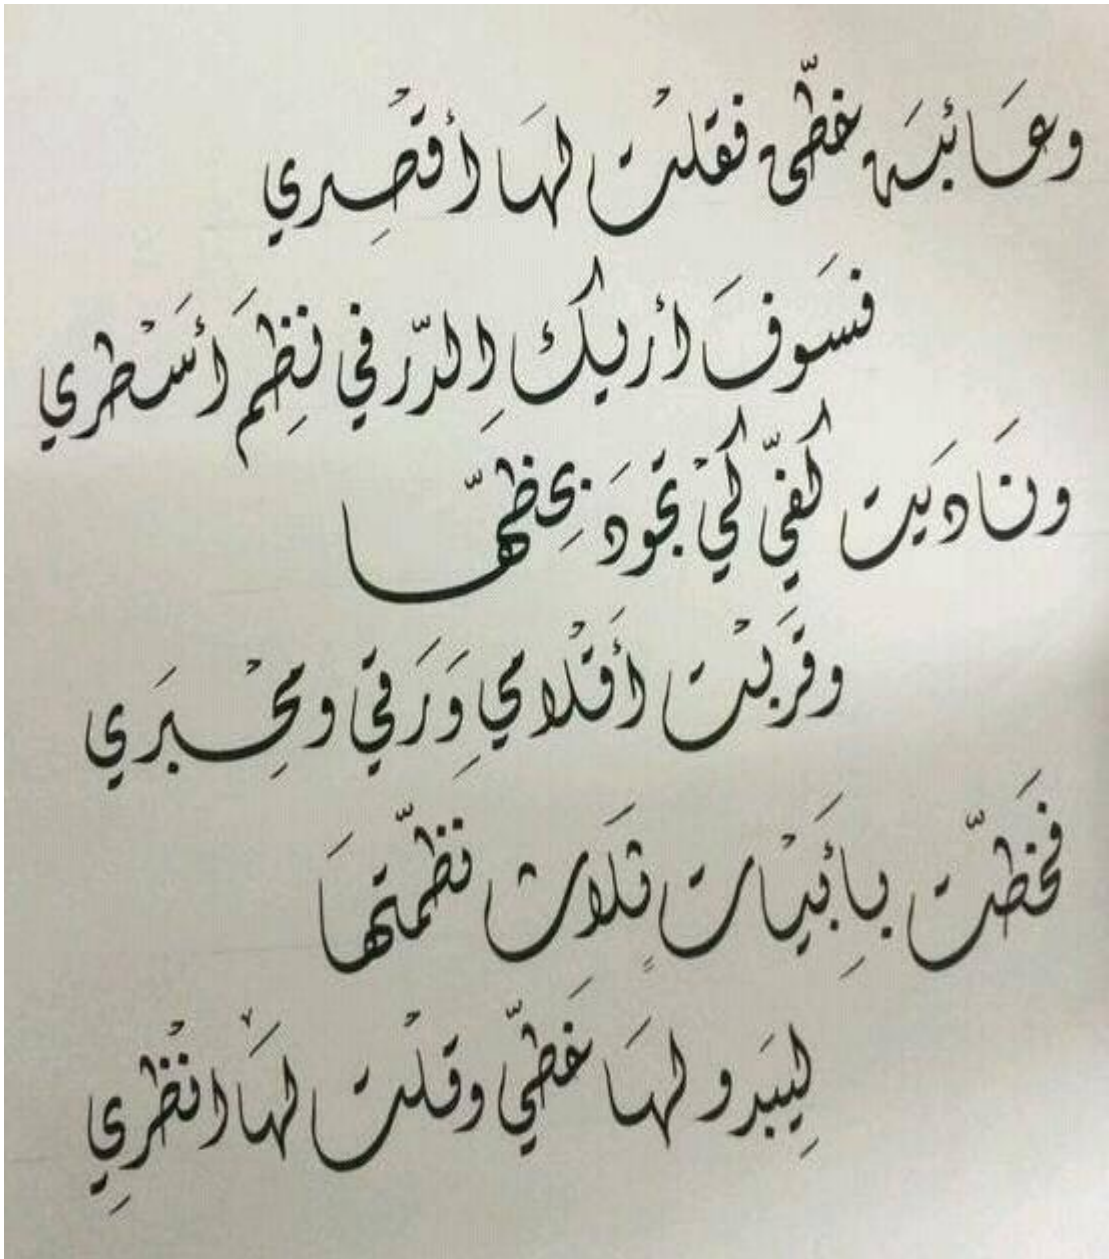 وعَائبَة خطّي فقلتُ لهَا أقصِري
فسَوفَ أريكِ الدّر في نظِمَ أسْطري
ونَاديَت كفّي كيْ تجودَ بِخطّها
وقَربْت أقْلامي وَرَقِي ومحِْبَري
فخَطّت بِأبيَْات ثلَاثٍ نظّمتهَا
لِيَبدو لهَا خَطّي وقلتُ لهَا انْظُرِي